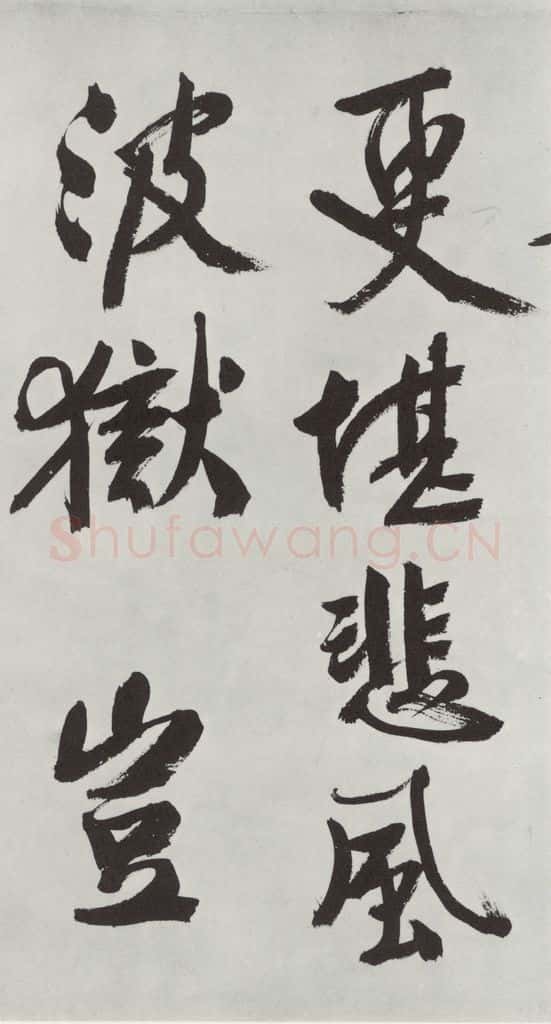 更堪悲風
波獄豈
Shufawang.CN